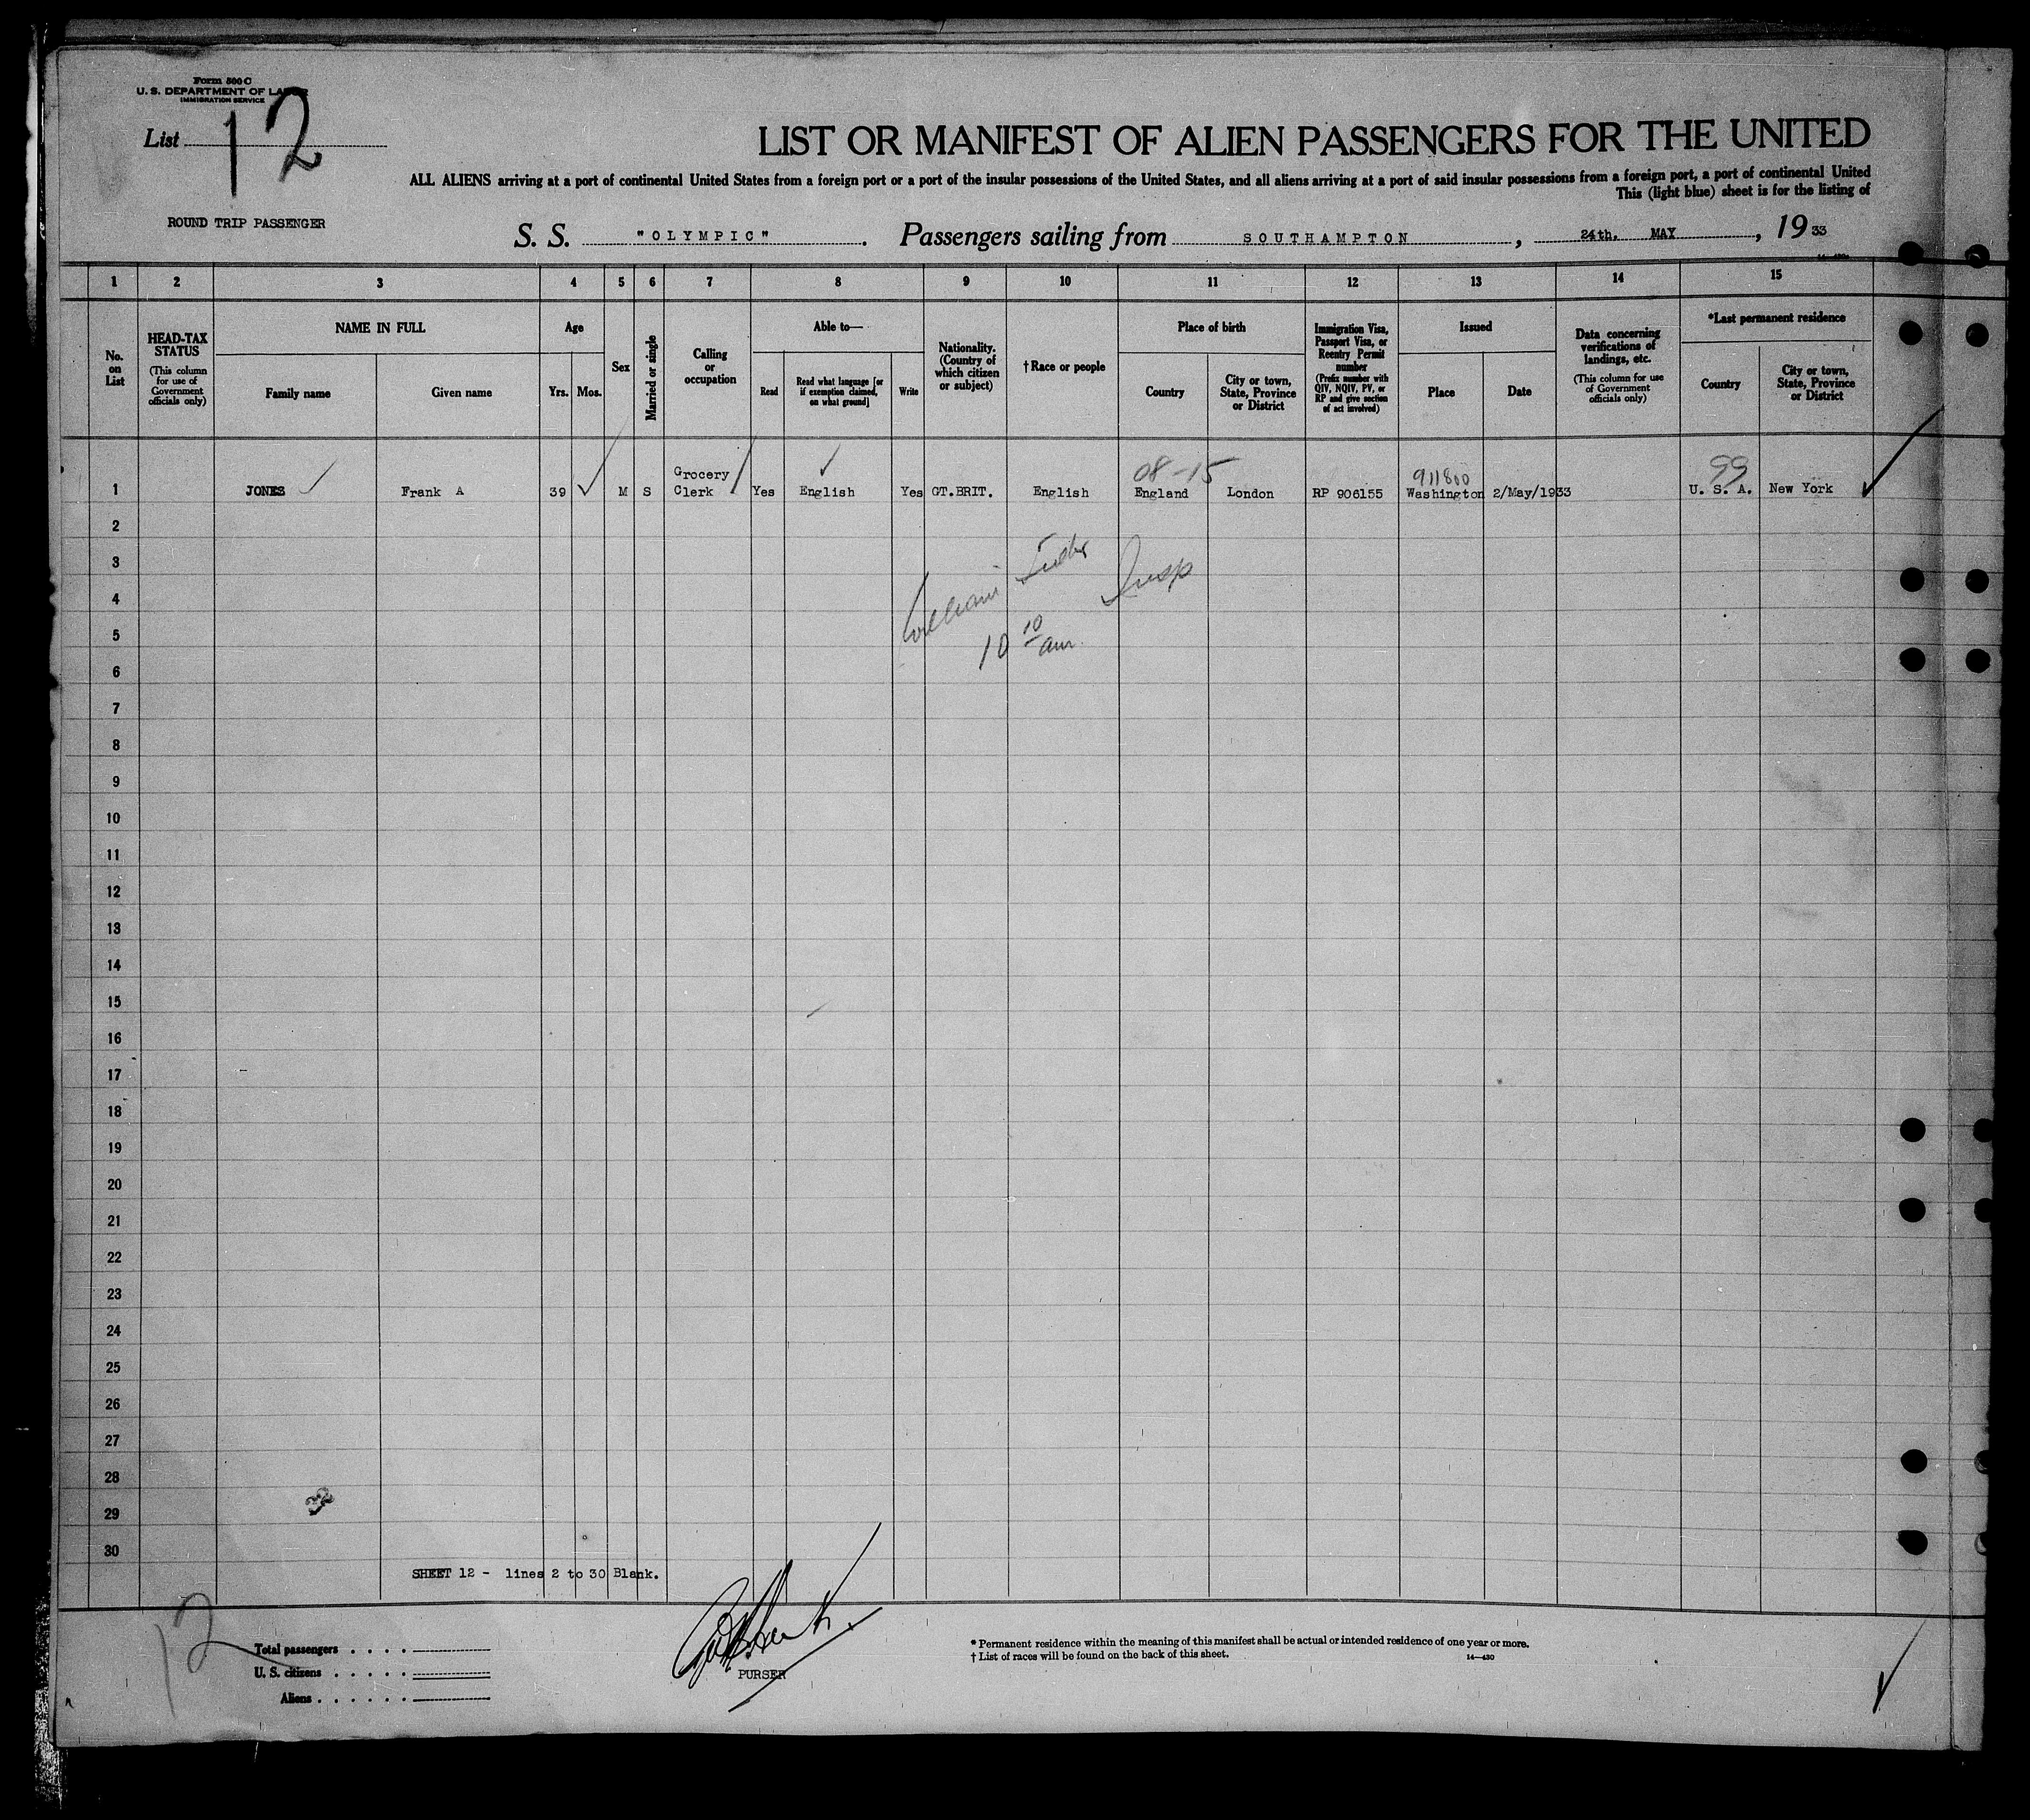 Form 500 C
U. S. DEPARTMENT OF LA
IMMIGRATION SERVICE
List 12
LIST OR MANIFEST OF ALIEN PASSENGERS FOR THE UNITED
ALL ALIENS arriving at a port of continental United States from a foreign port or a port of the insular possessions of the United States, and all aliens arriving at a port of said insular possessions from a foreign port, a port of continental United
This (light blue) sheet is for the listing of
ROUND TRIP PASSENGER
S. S. "OLYMPIC". Passengers sailing from SOUTHAMPTON, 24th. MAY, 19 33
1 2 3 4 5 6 7 8 9 10 11 12 13 14 15
No. on List
HEAD-TAX STATUS
(This column for use of Government officials only)
NAME IN FULL
Family name
Given name
Age
Yrs.
Mos.
Sex
Married or single
Calling or occupation
Able to—
Read
Read what language [or if exemption claimed, on what ground]
Write
Nationality. (Country of which citizen or subject)
†Race or people
Place of birth
Country
City or town, State, Province or District
Immigration Visa, Passport Visa, or Reentry Permit number
(Prefix number with QIV, NQIV, PV, or RP and give section of act involved)
Issued
Place
Date
Data concerning verifications of landings, etc.
(This column for use of Government officials only)
*Last permanent residence
Country
City or town, State, Province or District
08-15
911800
99
1 JONES Frank A 39 M S Grocery Clerk Yes English Yes GT.BRIT. English England London RP 906155 Washington 2/May/1933 U. S. A. New York
2
3
William Insp
4
5
10 10 am
6
7
8
9
10
11
12
13
14
15
16
17
18
19
20
21
22
23
24
25
26
27
28
29
30
SHEET 12 - lines 2 to 30 Blank.
12
Total passengers . . . .
U. S. citizens . . . . .
Aliens . . . . . .
PURSER
* Permanent residence within the meaning of this manifest shall be actual or intended residence of one year or more.
† List of races will be found on the back of this sheet.
14—430